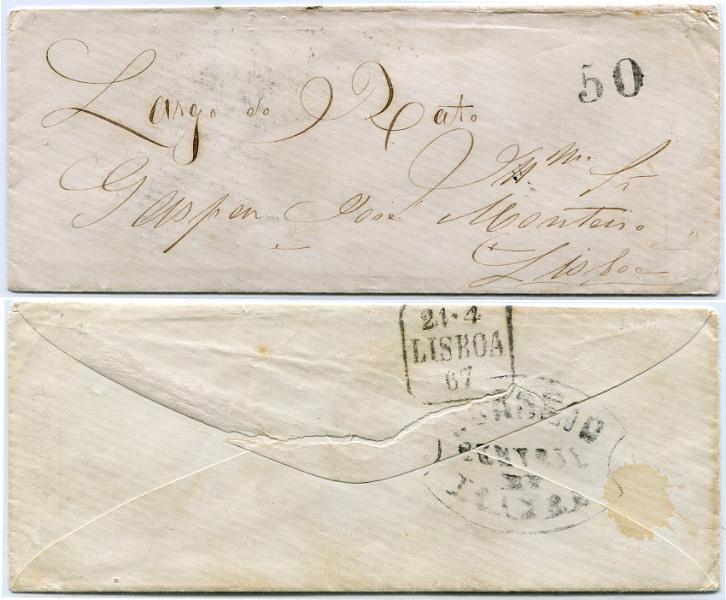 50
Largo do Rato
Illmo. Sr.
Gaspar José Monteiro
Lisboa
21·4
LISBOA
67
CORREIO
CENTRAL
DE
LISBOA